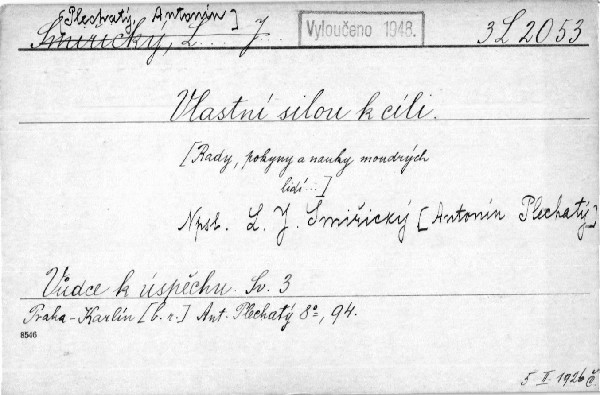 [Plechatý, Antonín]
Smiřický, L... J... Vyloučeno 1948. 3L 2053
Vlastní silou k cíli.
[Rady, pokyny a nauky moudrých
lidí...]
Npsl. L. J. Smiřický [Antonín Plechatý]
Vůdce k úspěchu. Sv. 3
Praha-Karlín [b. r.] Ant. Plechatý 8°, 94.
8546
5 II. 1926 č.